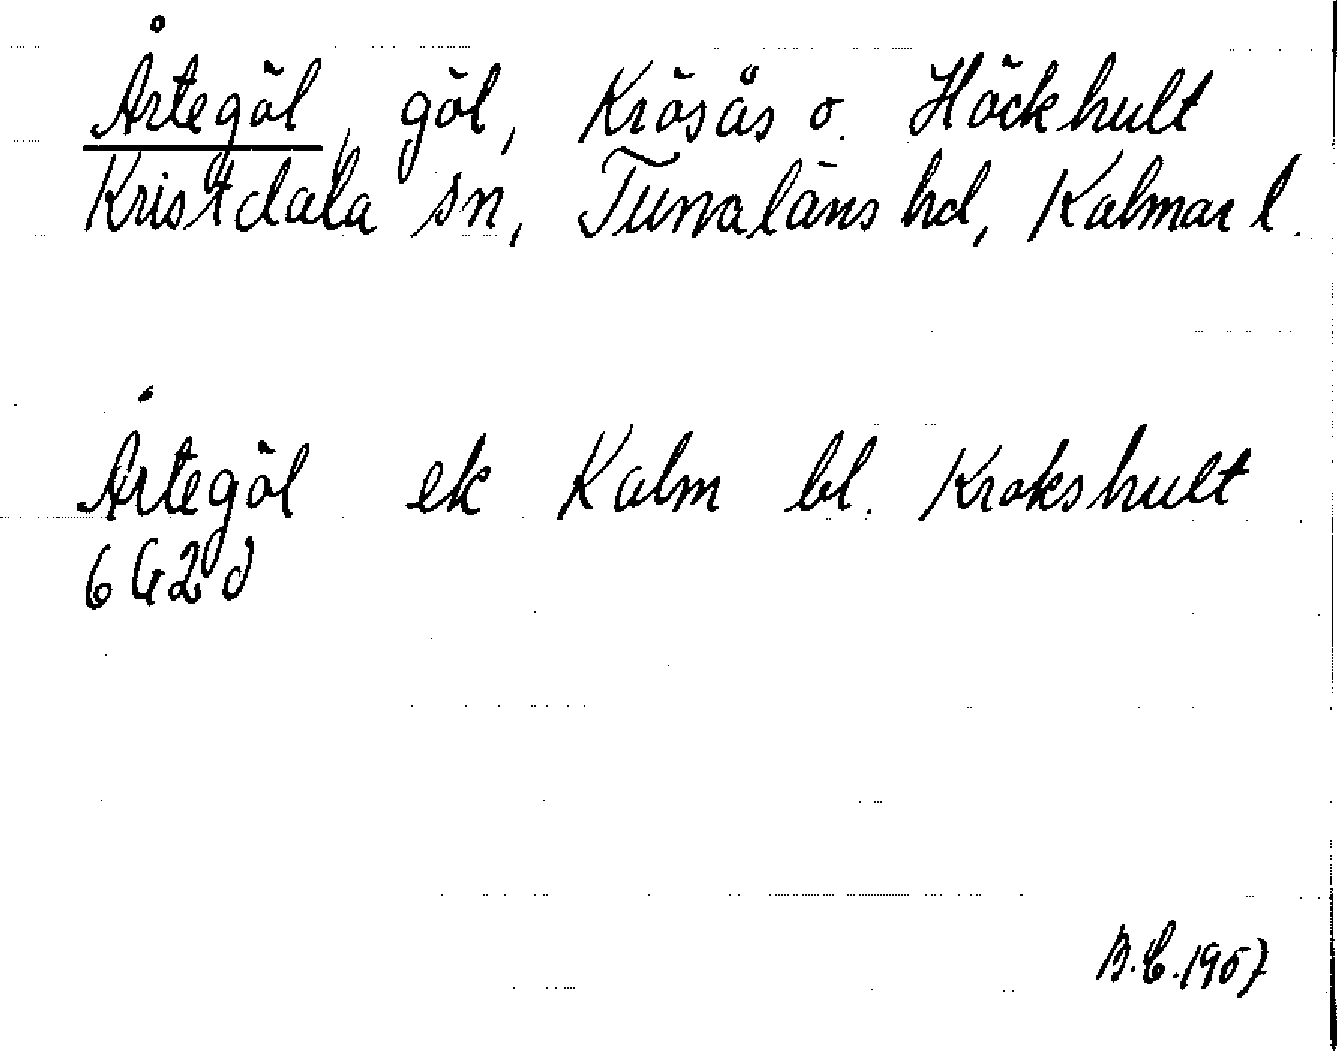 Årtegöl, göl, Krösås o. Höckhult
Kristdala sn, Tunaläns hd, Kalmar l.
Årtegöl ek Kalm bl. Krokshult
6 G 2 d
B.E. 1957